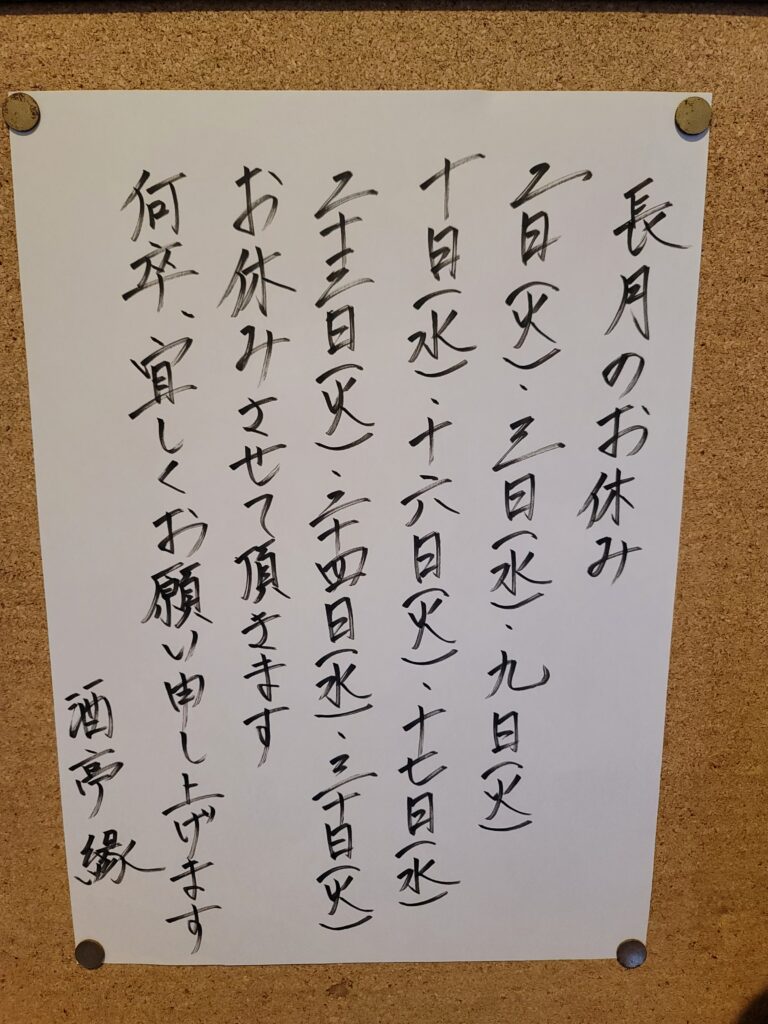 長月のお休み
二日(火)、三日(水)、九日(火)
十日(水)、十六日(火)、十七日(水)
二十三日(火)、二十四日(水)、三十日(火)
お休みさせて頂きます
何卒、宜しくお願い申し上げます
酒亭 縁